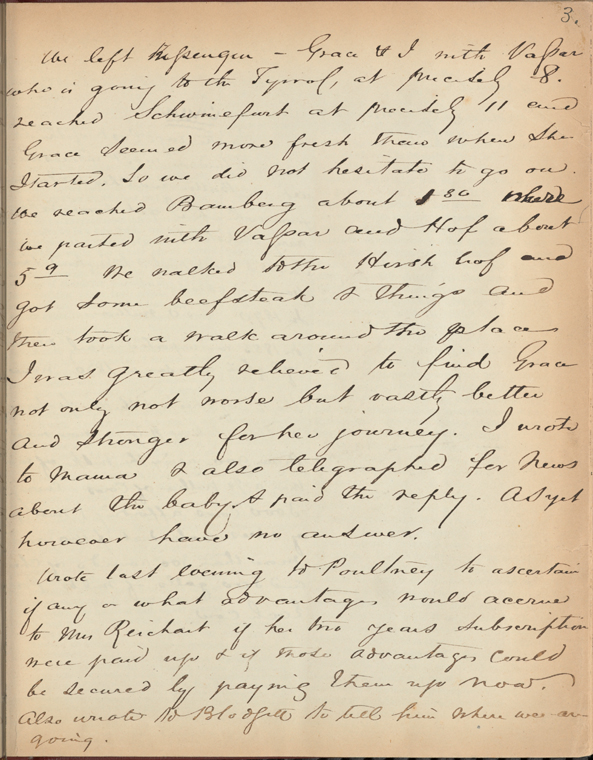 3.
We left Kissengen - Grace & I with Vassar
who is going to the Tyrrol, at precisely 8.
reached Schwinefurt at precisely 11 and
Grace seemed more fresh than when she
started. So we did not hesitate to go on.
We reached Bamberg about where
we parted with Vassar and Hof about
5 We walked to the Hirsh hof and
got some beefsteak & things and
then took a walk around the place
I was greatly relieved to find Grace
not only not worse but vastly better
and stronger for her journey. I wrote
to Mama & also telegraphed for news
about the baby & paid the reply. As yet
however have no answer.
Wrote last evening to Poultney to ascertain
if any or what advantages would accrue
to Mrs Reichart if her two years subscription
were paid up & if those advantages could
be secured by paying them up now.
Also wrote to Blodgett to tell him where we are
going.